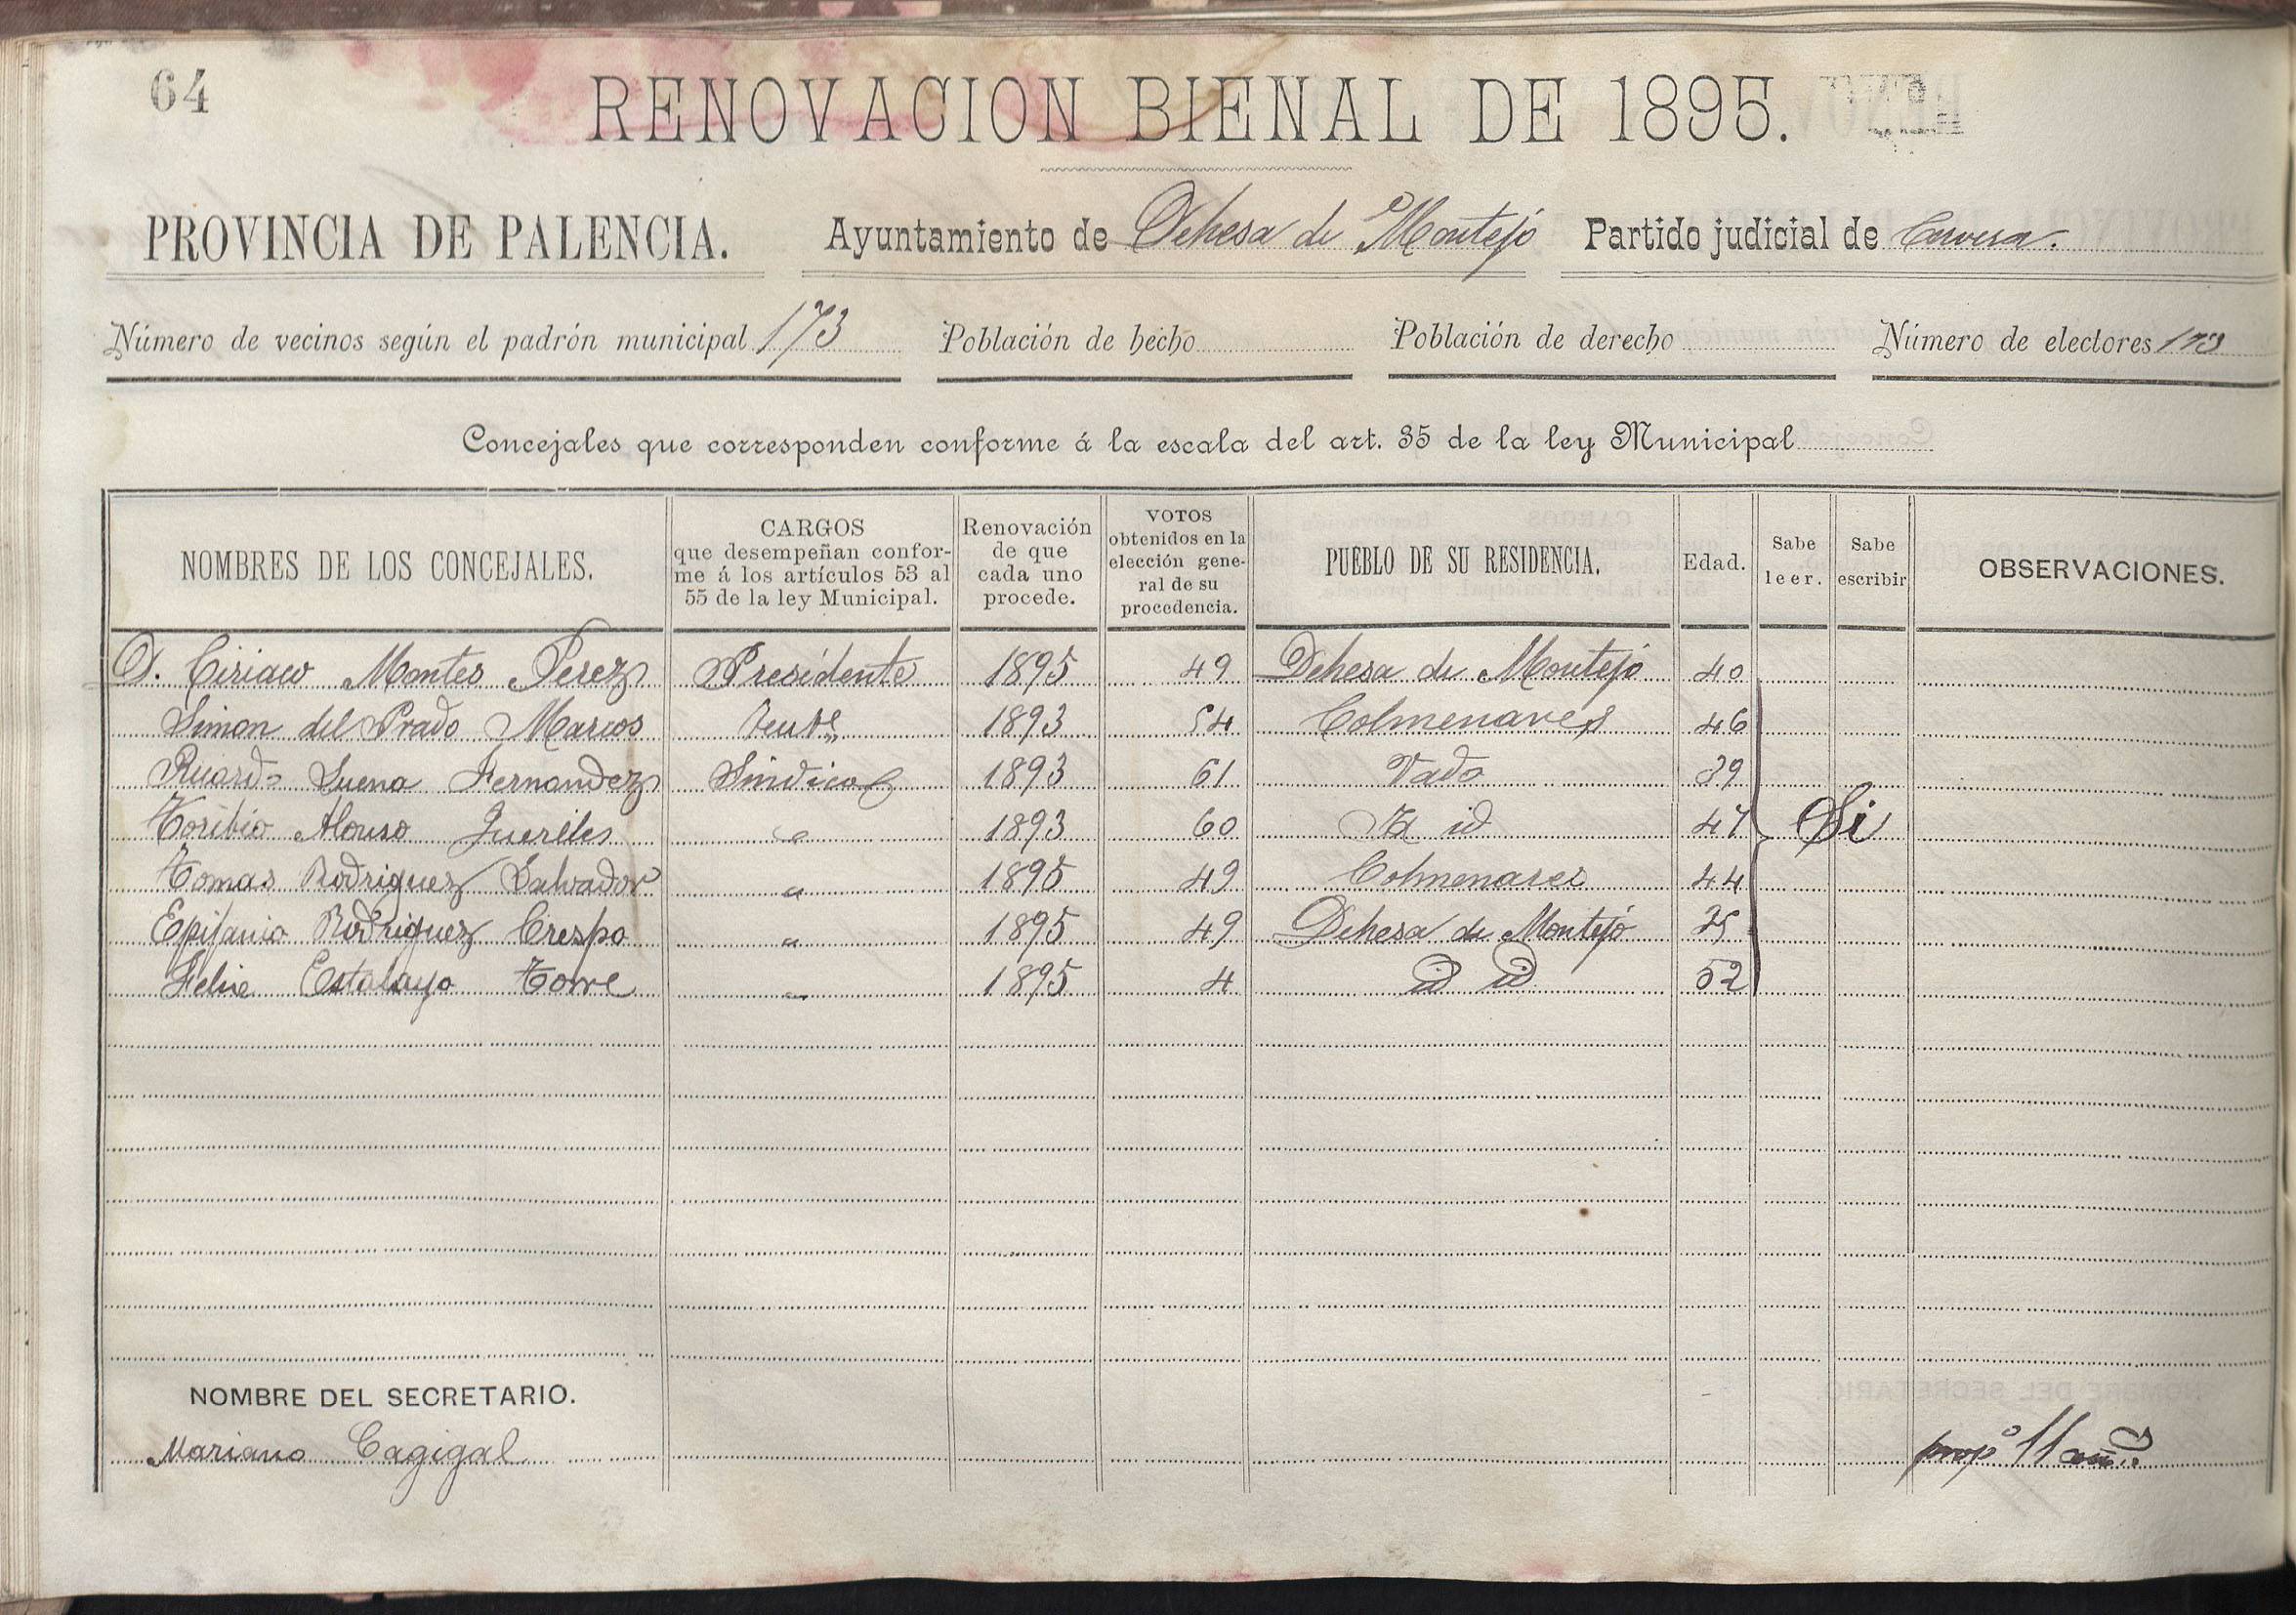 64
RENOVACION BIENAL DE 1895.
PROVINCIA DE PALENCIA. Ayuntamiento de Dehesa de Montejo Partido judicial de Cervera.
Número de vecinos según el padrón municipal 173 Población de hecho Población de derecho Número de electores 173
Concejales que corresponden conforme á la escala del art. 35 de la ley Municipal
NOMBRES DE LOS CONCEJALES. CARGOS que desempeñan conforme á los artículos 53 al 55 de la ley Municipal. Renovación de que cada uno procede. VOTOS obtenidos en la elección general de su procedencia. PUEBLO DE SU RESIDENCIA. Edad. Sabe leer. Sabe escribir OBSERVACIONES.
D. Ciriaco Montes Perez Presidente 1895 49 Dehesa de Montejo 40
Simon del Prado Marcos Tente 1893 54 Colmenares 46
Ricardo Luena Fernandez Sindico 1893 61 Vado 39
Toribio Alonso 1893 60 Id id 47 Si
Tomas Rodriguez Salvador " 1895 49 Colmenares 44
Epifanio Rodriguez Crespo " 1895 49 Dehesa de Montejo
Felix Estalayo Torre " 1895 4 id id 52
NOMBRE DEL SECRETARIO.
Mariano Cagigal